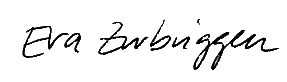 Eva Zurbriggen